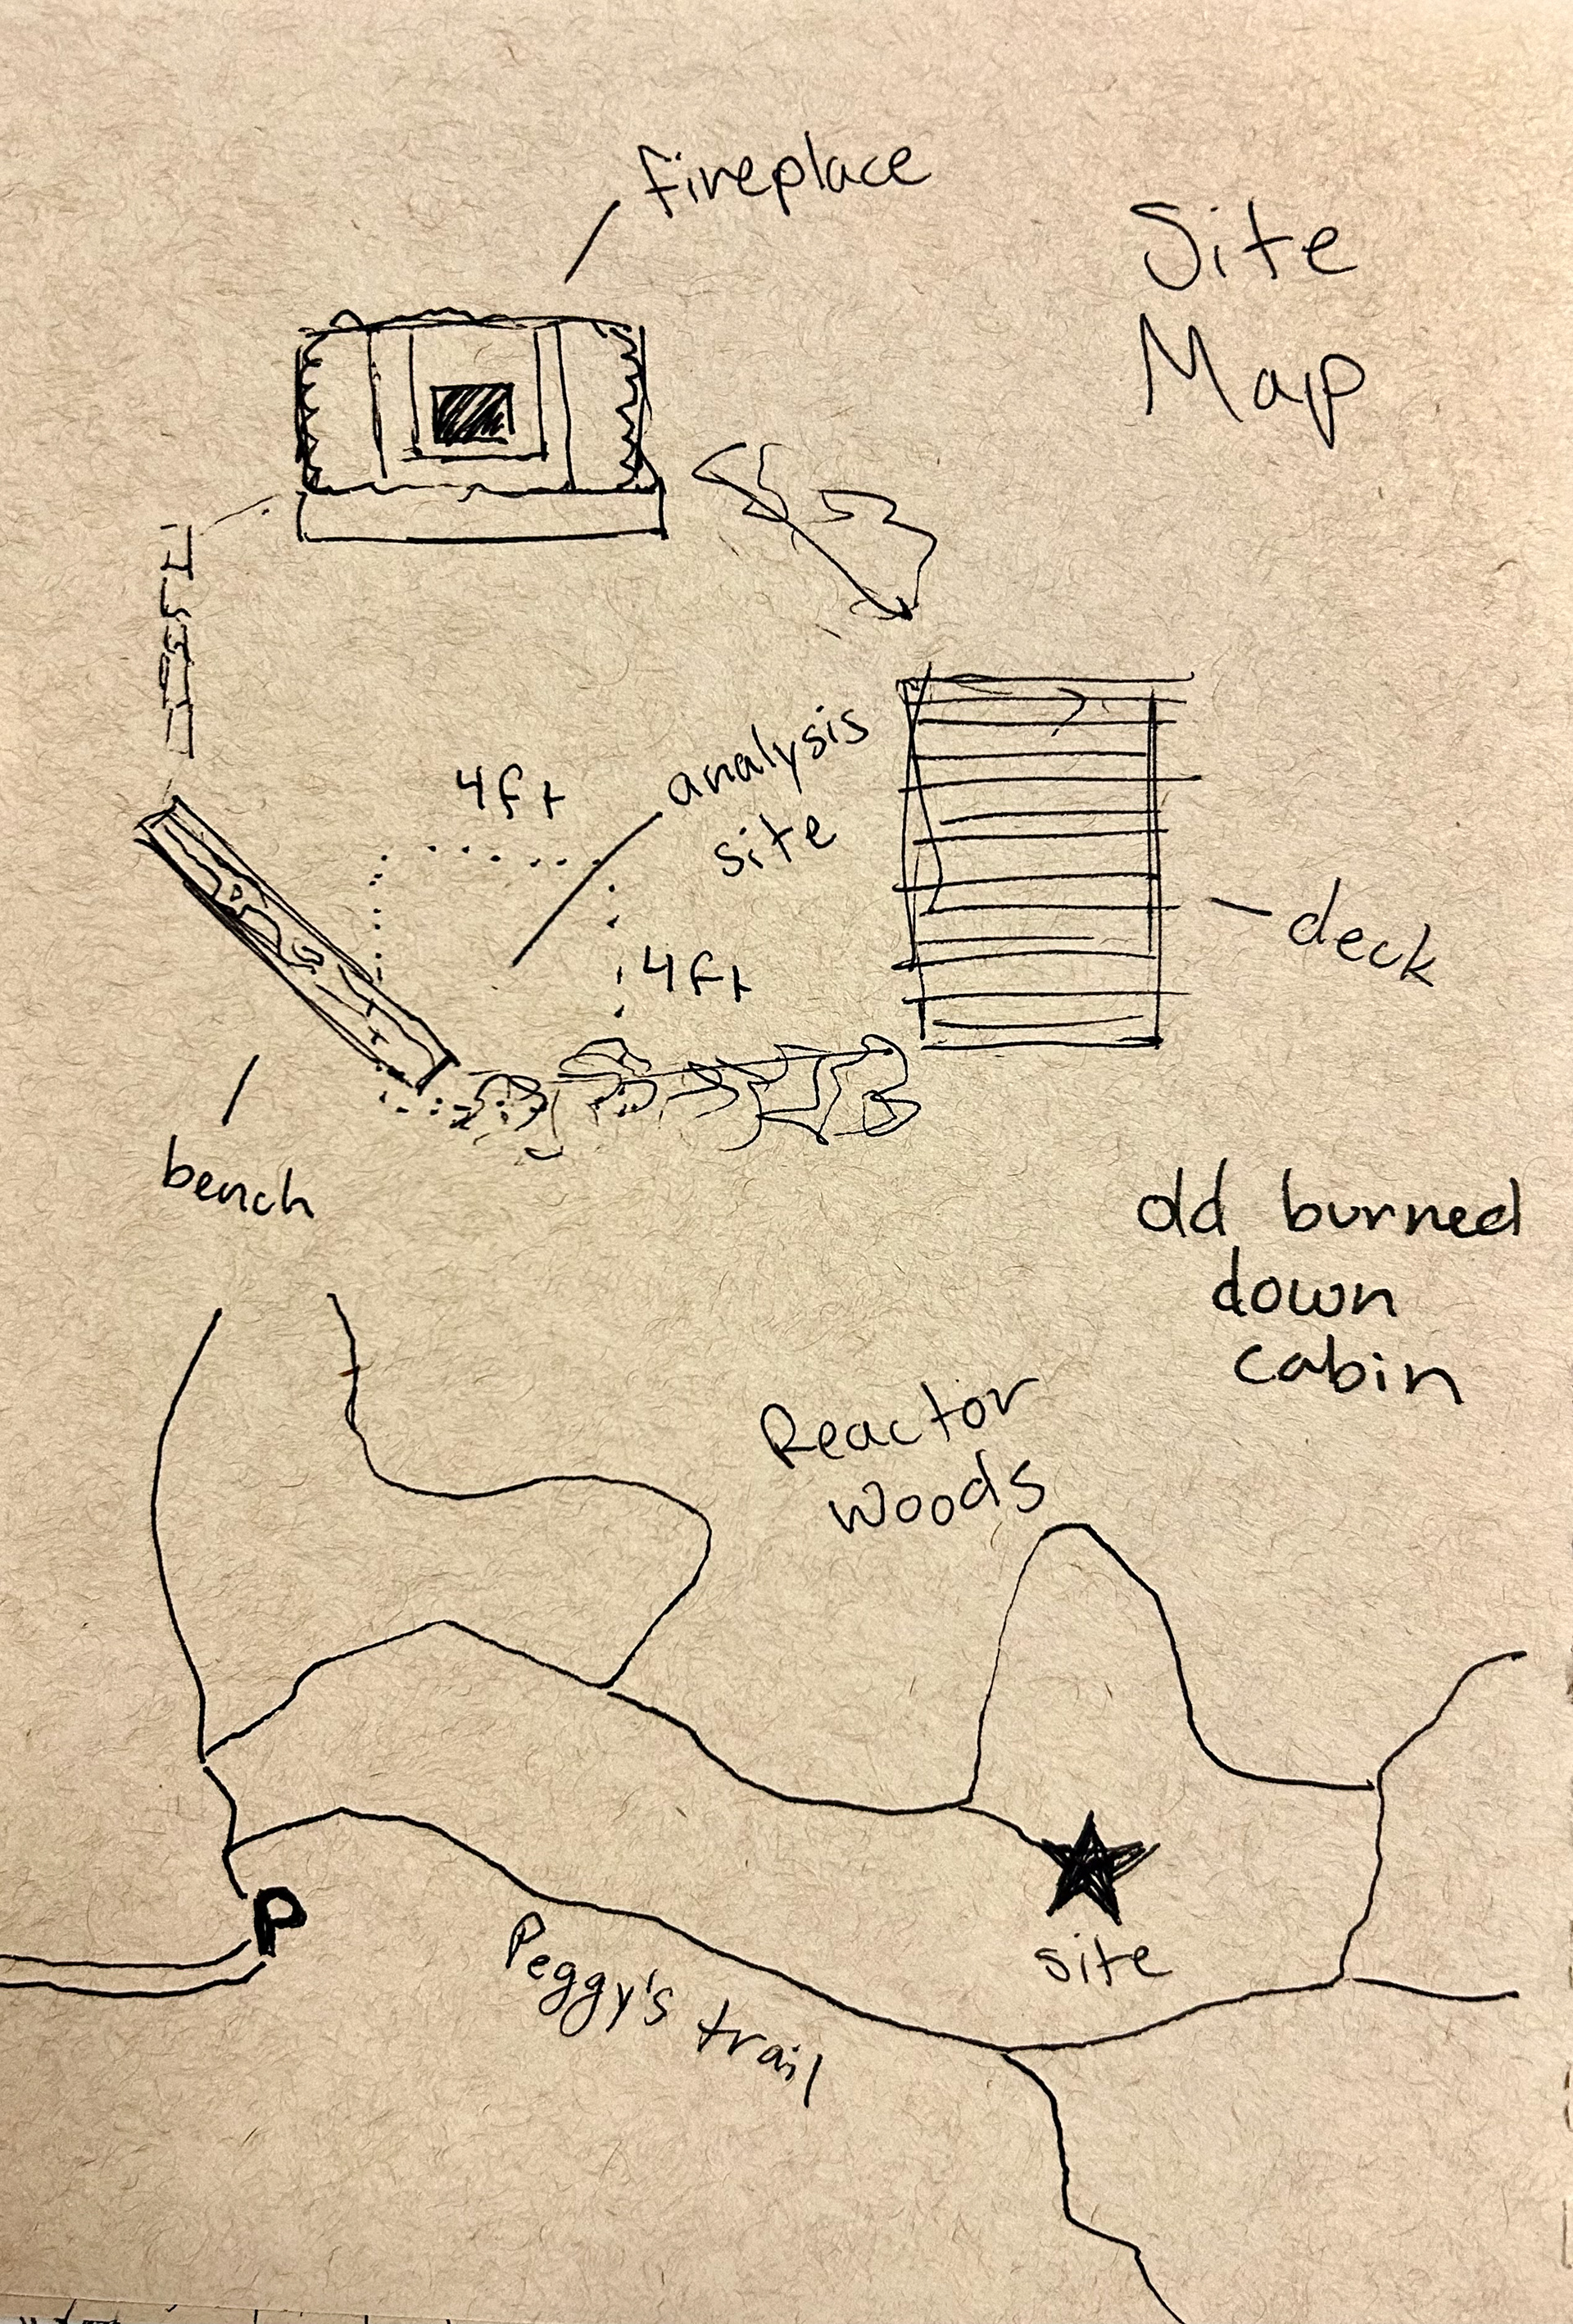 fireplace
Site
Map
analysis
site
4ft
4ft
deck
bench
old burned
down
cabin
Reactor
woods
P
site
Peggy's trail